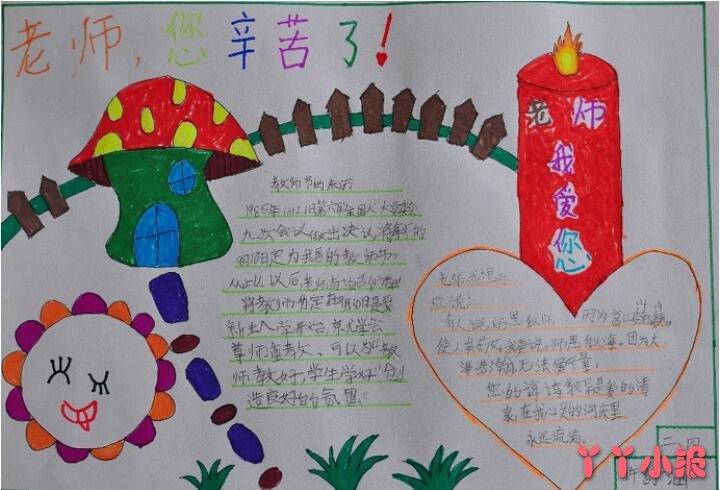 老师,您辛苦了!
老师
我
爱
您
教师节的来历
1985年1月21日第六届全国人大常委会
九次会议做出决议,将每年的
9月10日定为我国的教师节。
从此以后,老师有了自己的
将教师节定在9月10日是
新生入学开始,
尊师重教 可以为"教
师教好,学生学好"创
造良好的氛围。
您说:
有人说师恩似山,因为高山
使人 我要说,师恩似海。因为大
海浩瀚无法估量。
您的谆谆教导是爱的清
泉,在我 的河床里
永远流淌。
二四
丫丫小报